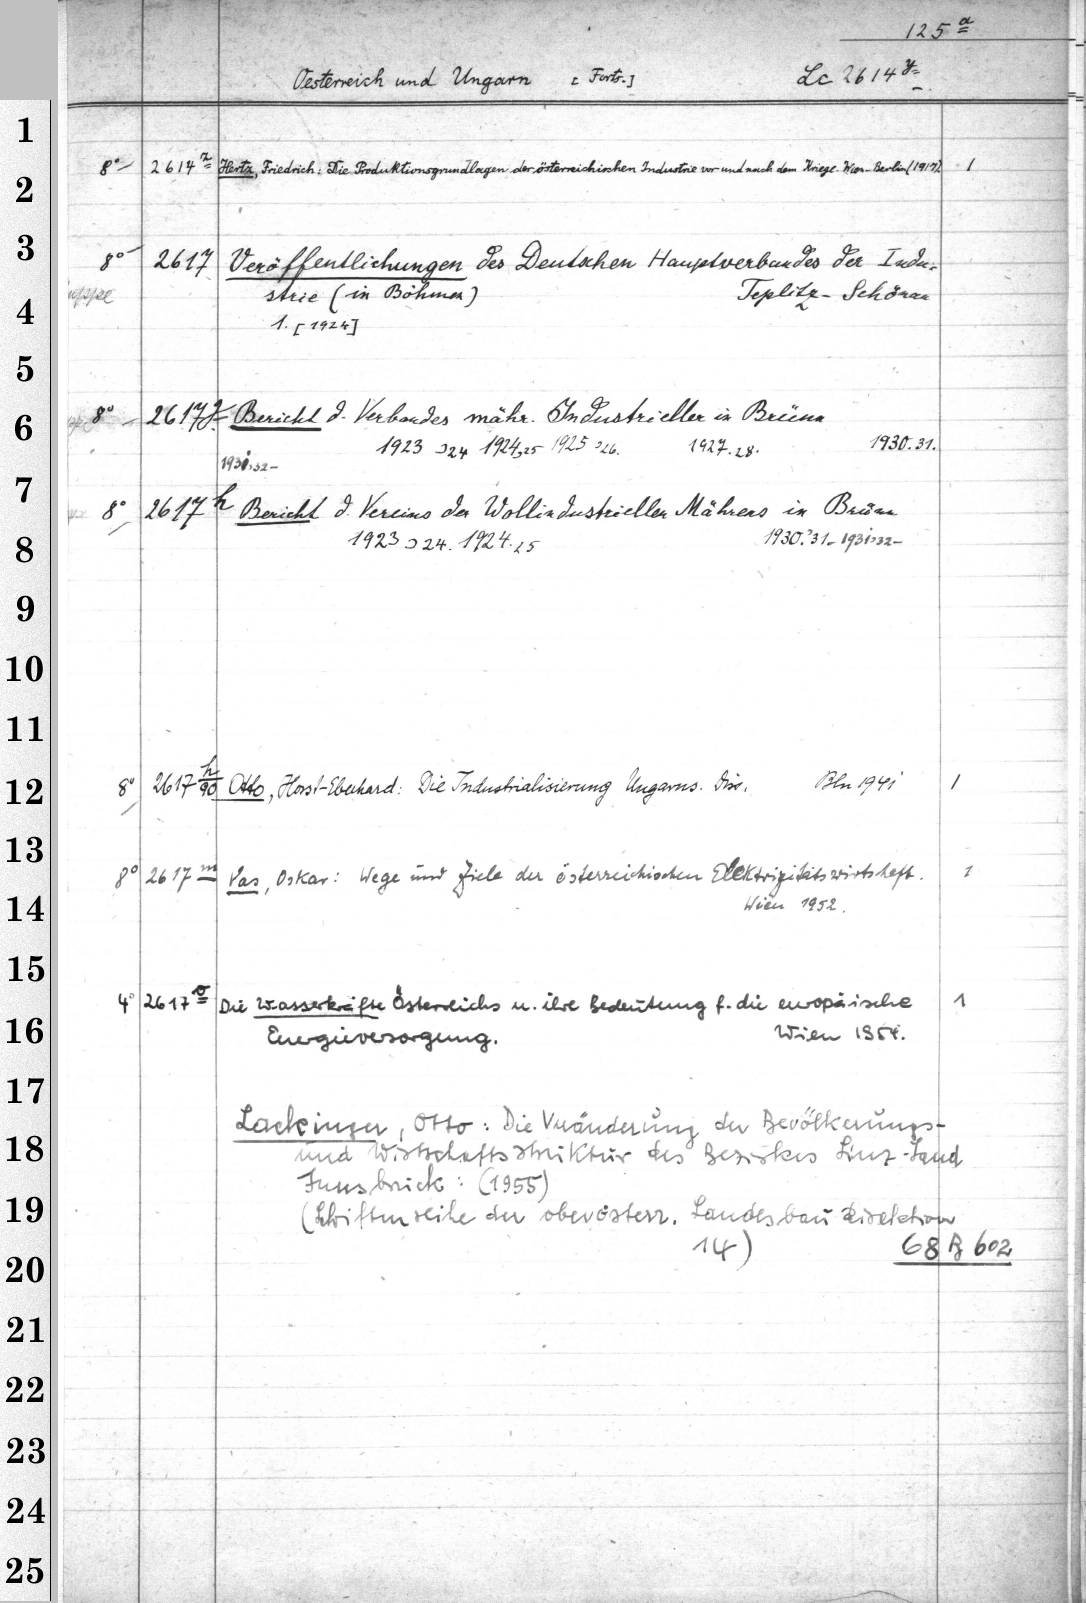 125 a
Oesterreich und Ungarn [Forts.] Lc 2614 y
8° 2614 z Hertz, Friedrich: Die Produktionsgrundlagen der österreichischen Industrie vor und nach dem Kriege. Wien-Berlin (1917) 1
8° 2617 Veröffentlichungen des Deutschen Hauptverbandes der Indu-
strie (in Böhmen) Teplitz-Schönau
1. [1924]
8° 2617 g Bericht d. Verbandes mähr. Industrieller in Brünn
1923/24 1924/25 1925/26. 1927.28. 1930.31.
1931/32-
8° 2617 h Bericht d. Vereins der Wollindustrieller Mährens in Brünn
1923/24. 1924.25 1930/31- 1931/32-
8° 2617 h/90 Otto, Horst-Eberhard: Die Industrialisierung Ungarns. Diss. Bln 1941 1
8° 2617 m Vas, Oskar: Wege und Ziele der österreichischen Elektrizitätswirtshaft. 1
Wien 1952.
4° 2617 o Die Wasserkräfte Österreichs u. ihre Bedeutung f. die europäische 1
Energieversorgung. Wien 1954.
Lackinger, Otto: Die Veränderung der Bevölkerungs-
und Wirtschaftsstruktur des Bezirkes Linz-Land
Innsbruck: (1955)
(Schriftenreihe der oberösterr. Landesbaudirektion
14) 68 B 602
1
2
3
4
5
6
7
8
9
10
11
12
13
14
15
16
17
18
19
20
21
22
23
24
25